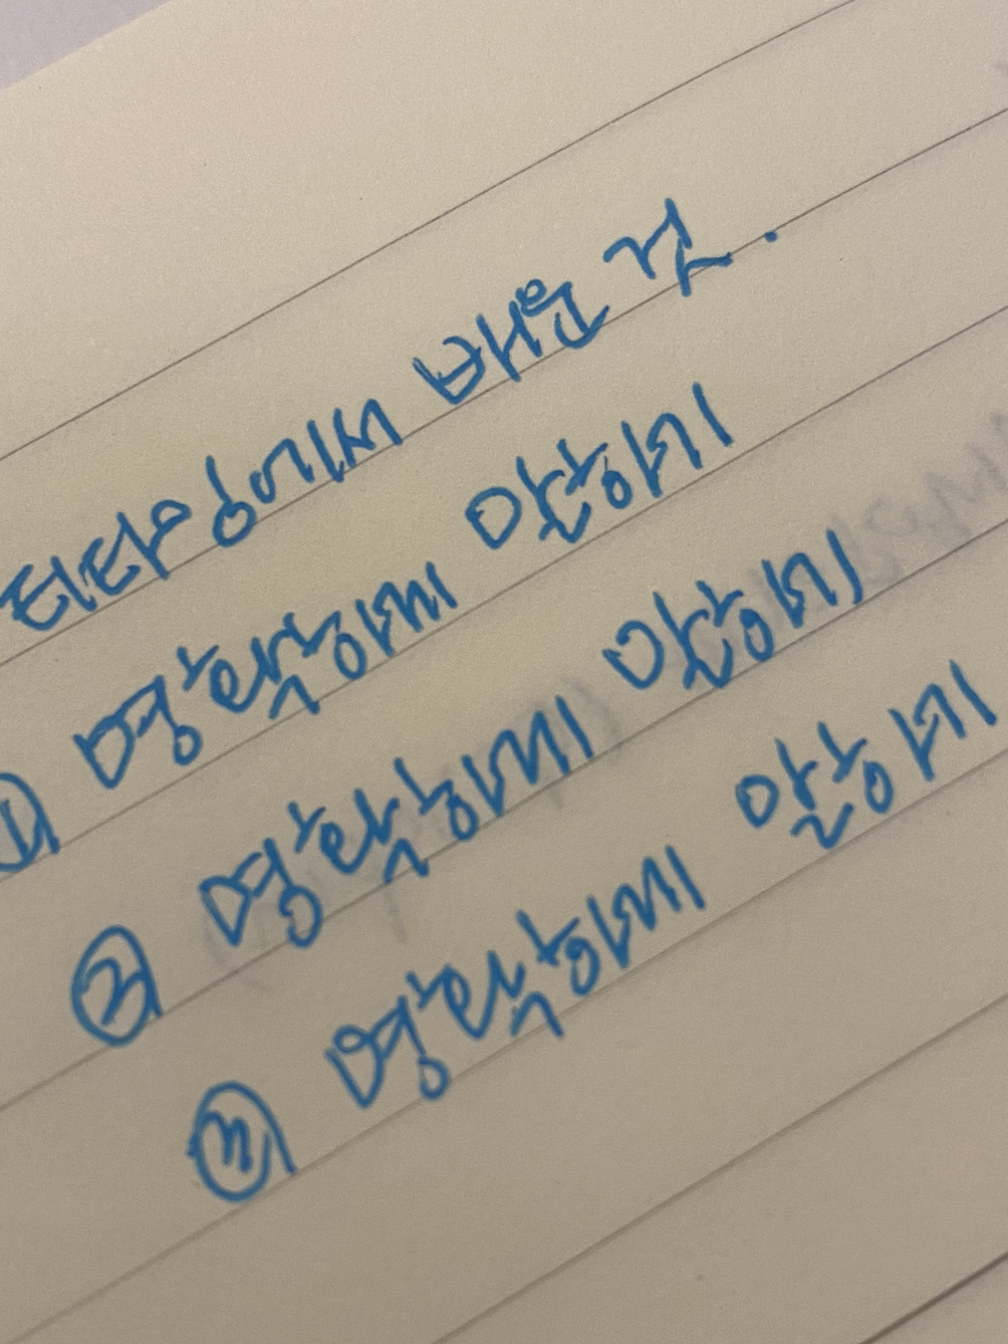 티타임에서 배운 것.
① 명확하게 말하기
② 명확하게 말하기
③ 명확하게 말하기